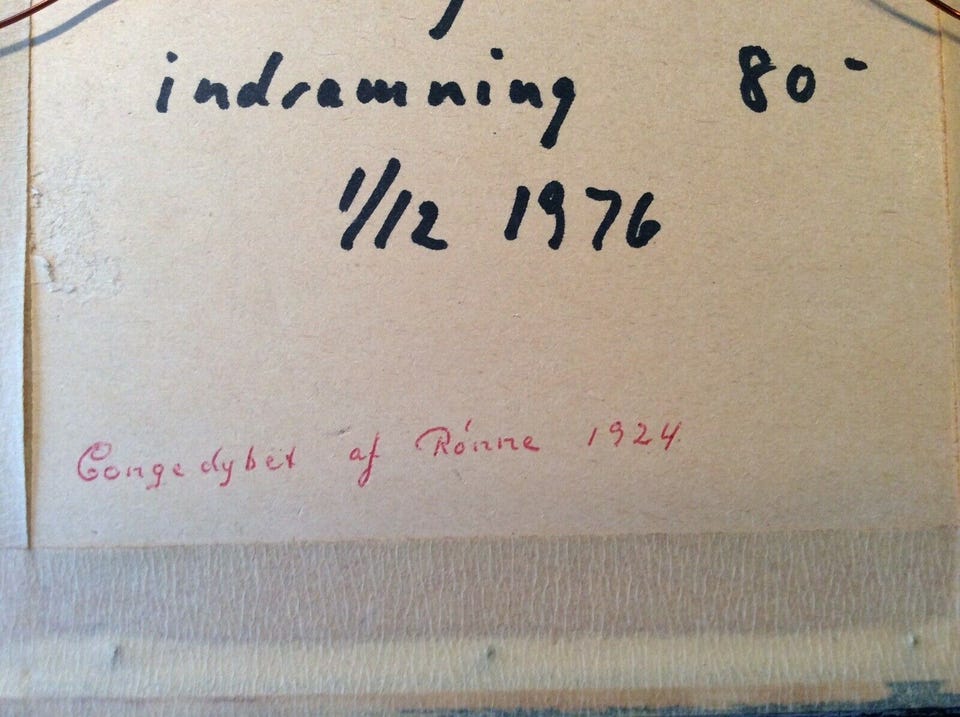 indramning 80-
1/12 1976
Congedybet af Rónne 1924.